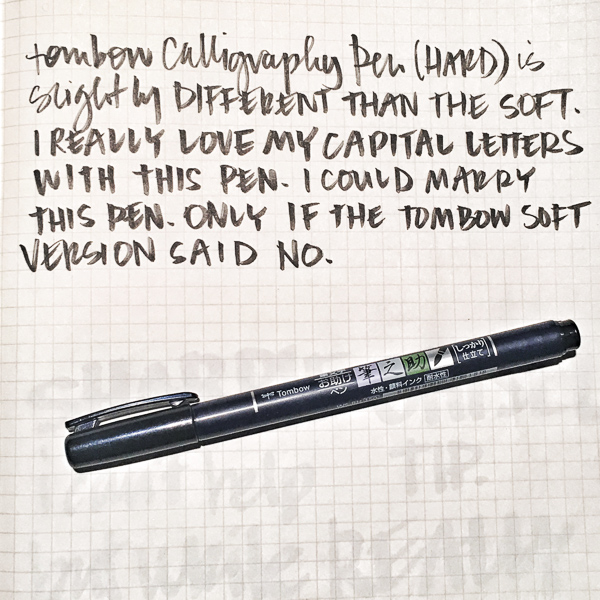 tombow Calligraphy Pen (HARD) is
slightly DIFFERENT THAN THE SOFT.
I REALLY LOVE MY CAPITAL LETTERS
WITH THIS PEN. I COULD MARRY
THIS PEN. ONLY IF THE TOMBOW SOFT
VERSION SAID NO.
Tombow
お助け
ペン
筆之助
水性・顔料インク 耐水性
しっかり
仕立て
TIP.